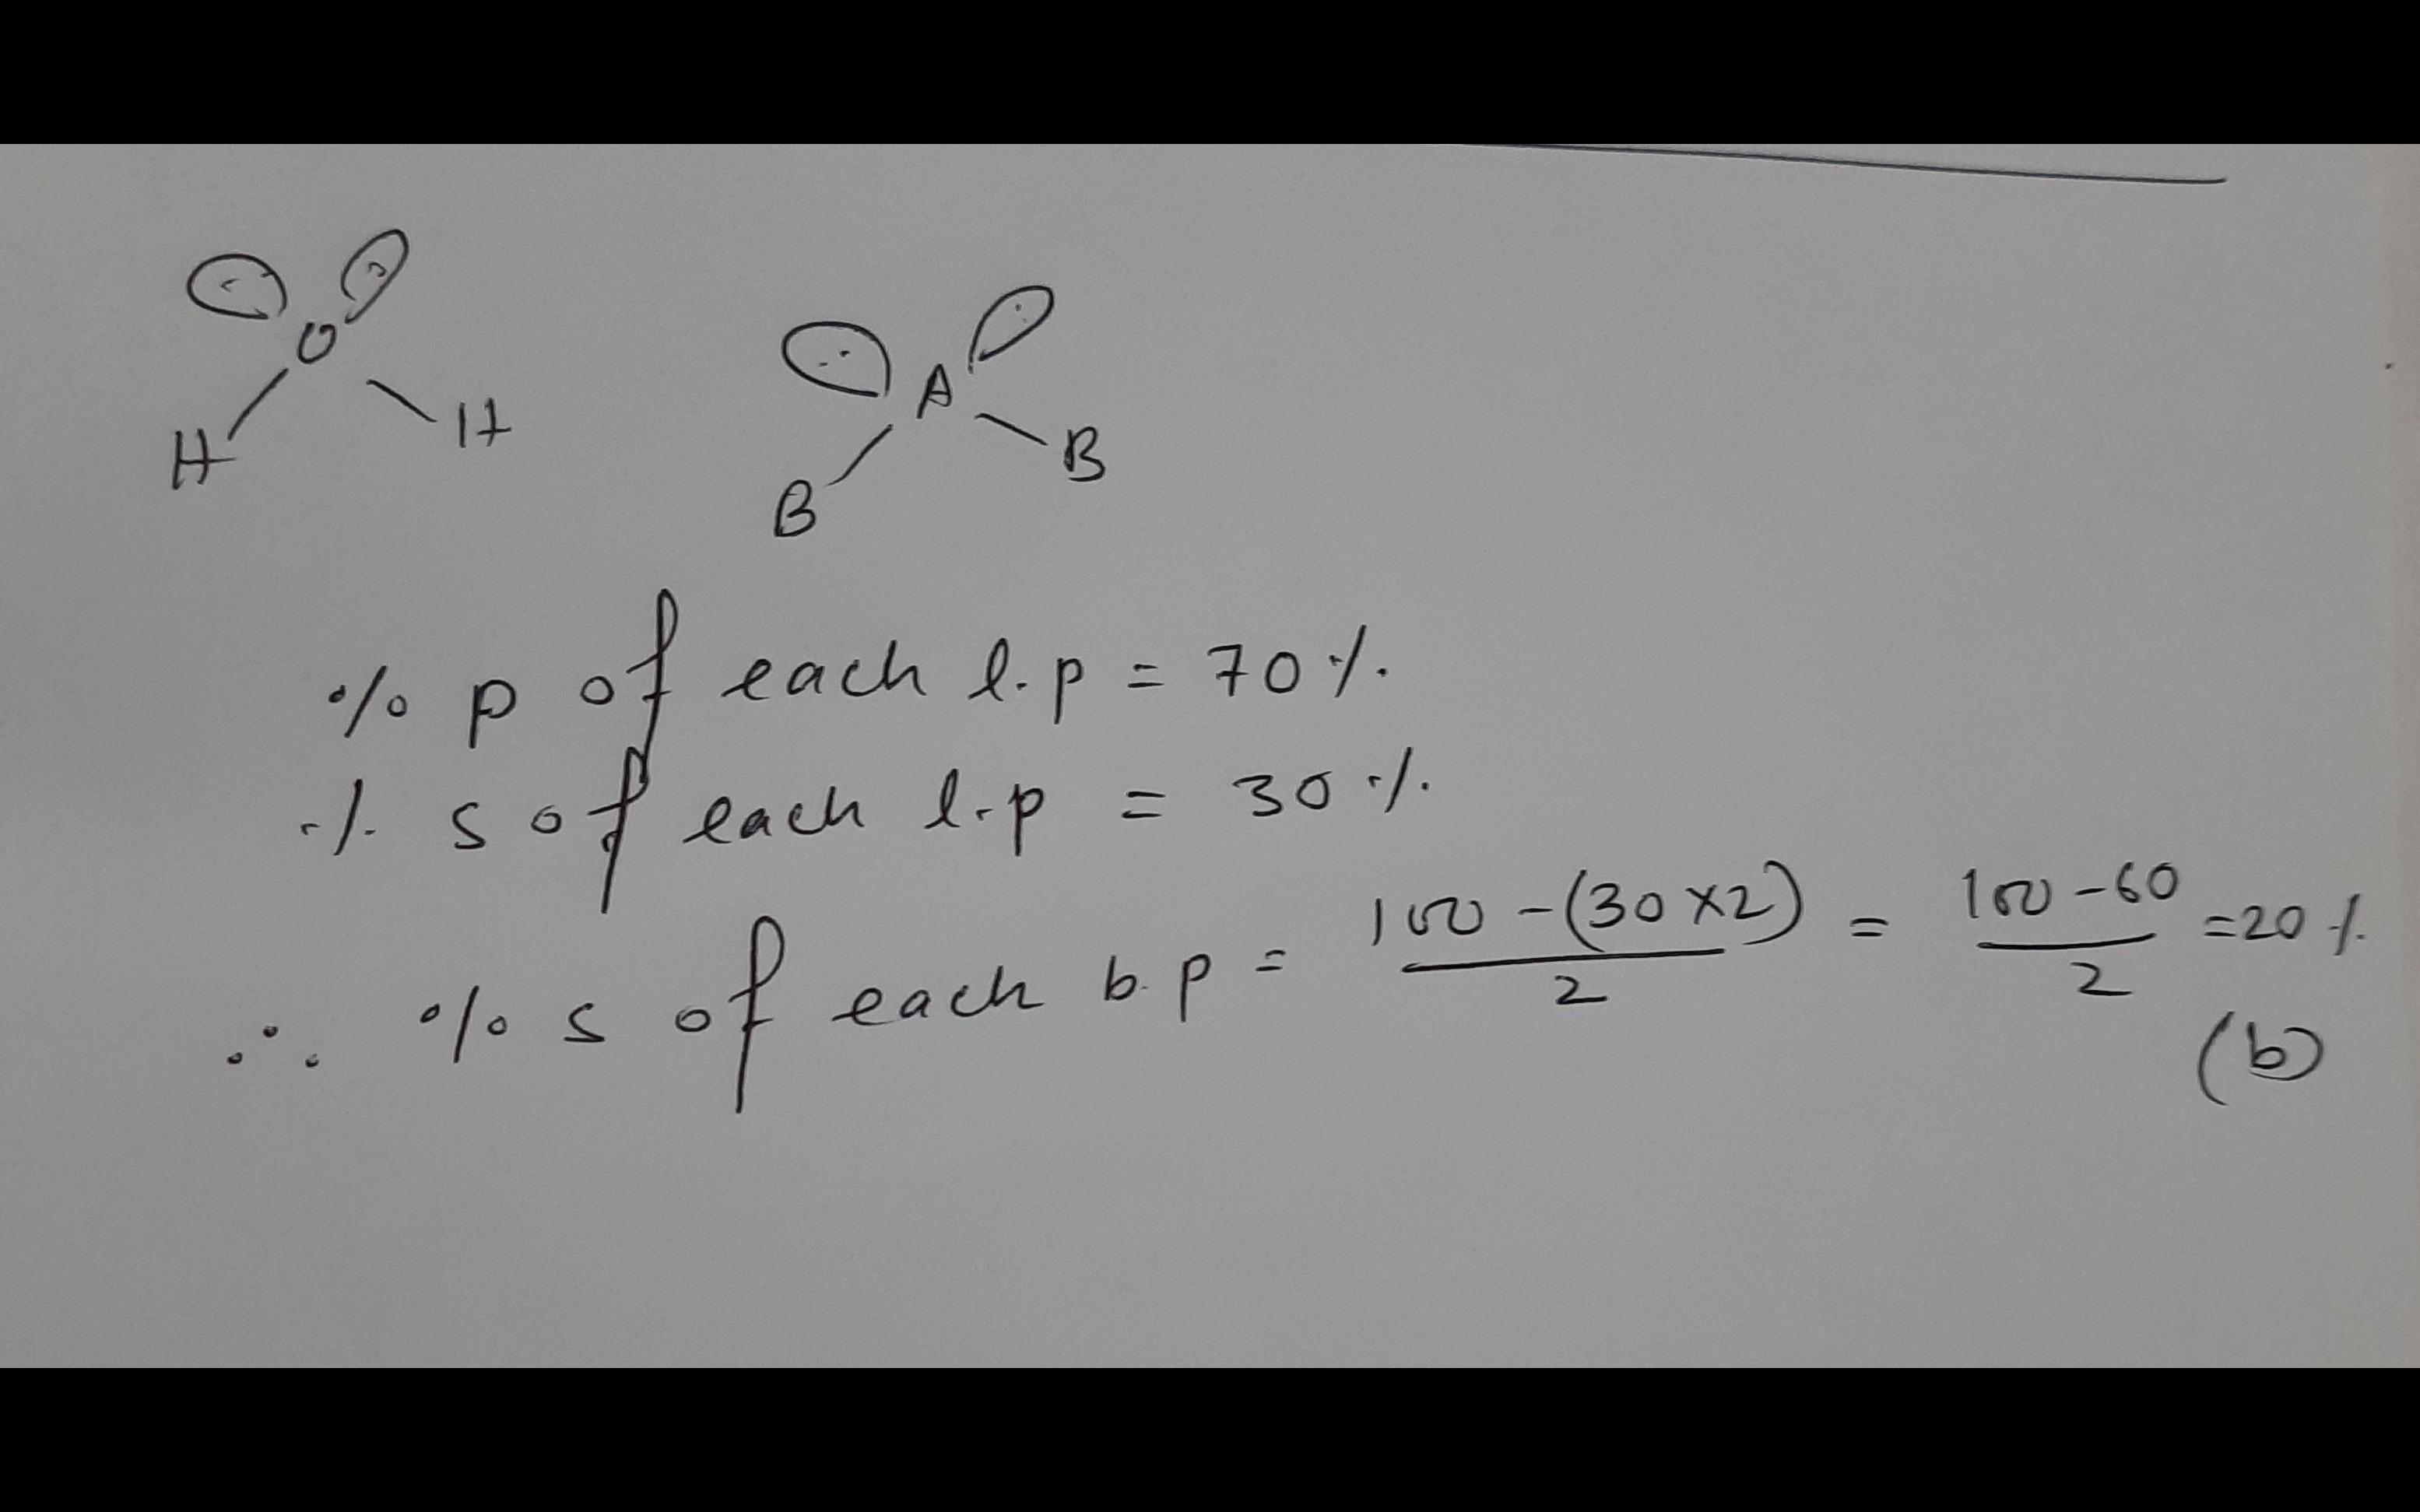 O
H H
A
B B
% p of each l.p = 70 %.
% s of each l.p = 30 %.
∴ % s of each b.p = 100 - (30 x 2) / 2 = 100 - 60 / 2 = 20 %.
(b)